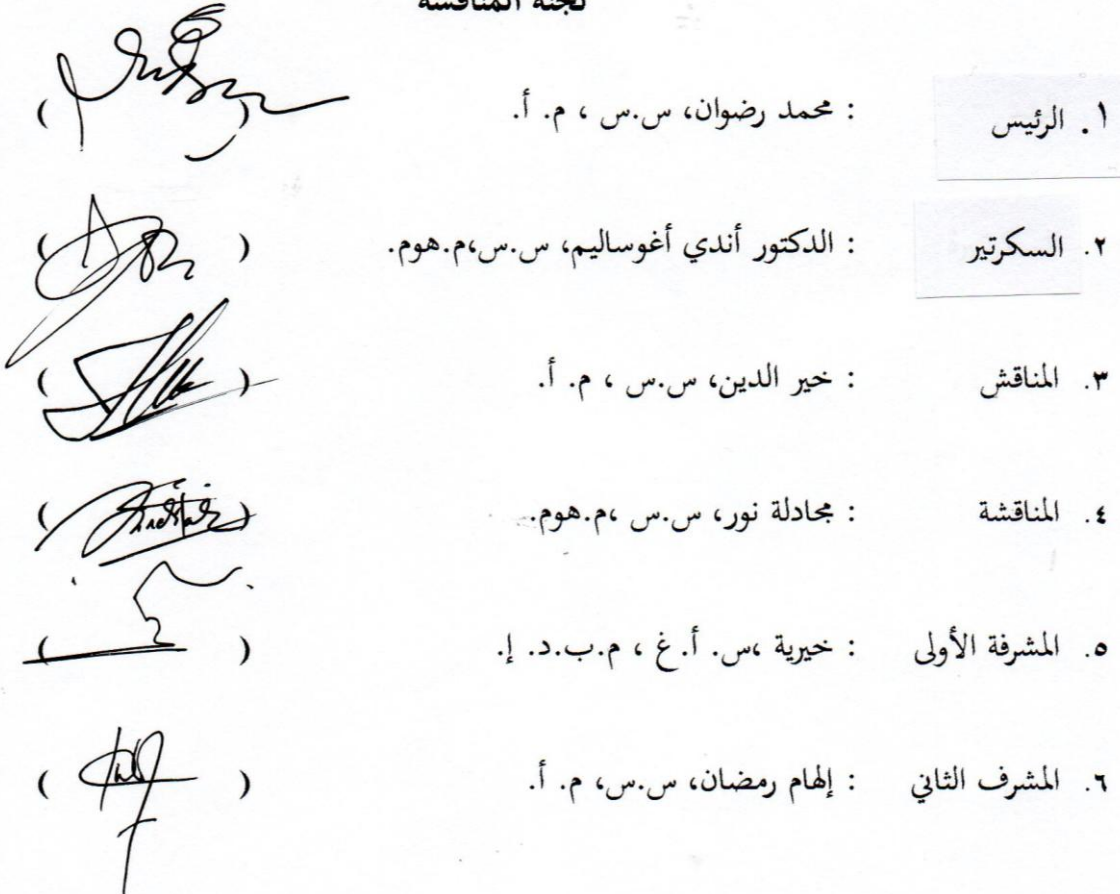 لجنة المناقشة
١. الرئيس : محمد رضوان، س.س ، م. أ. ( )
٢. السكرتير : الدكتور أندي أغوساليم، س.س،م.هوم. ( )
٣. المناقش : خير الدين، س.س ، م. أ. ( )
٤. المناقشة : مجادلة نور، س.س ،م.هوم. ( )
٥. المشرفة الأولى : خيرية ،س. أ.غ ، م.ب.د. إ. ( )
٦. المشرف الثاني : إلهام رمضان، س.س، م. أ. ( )